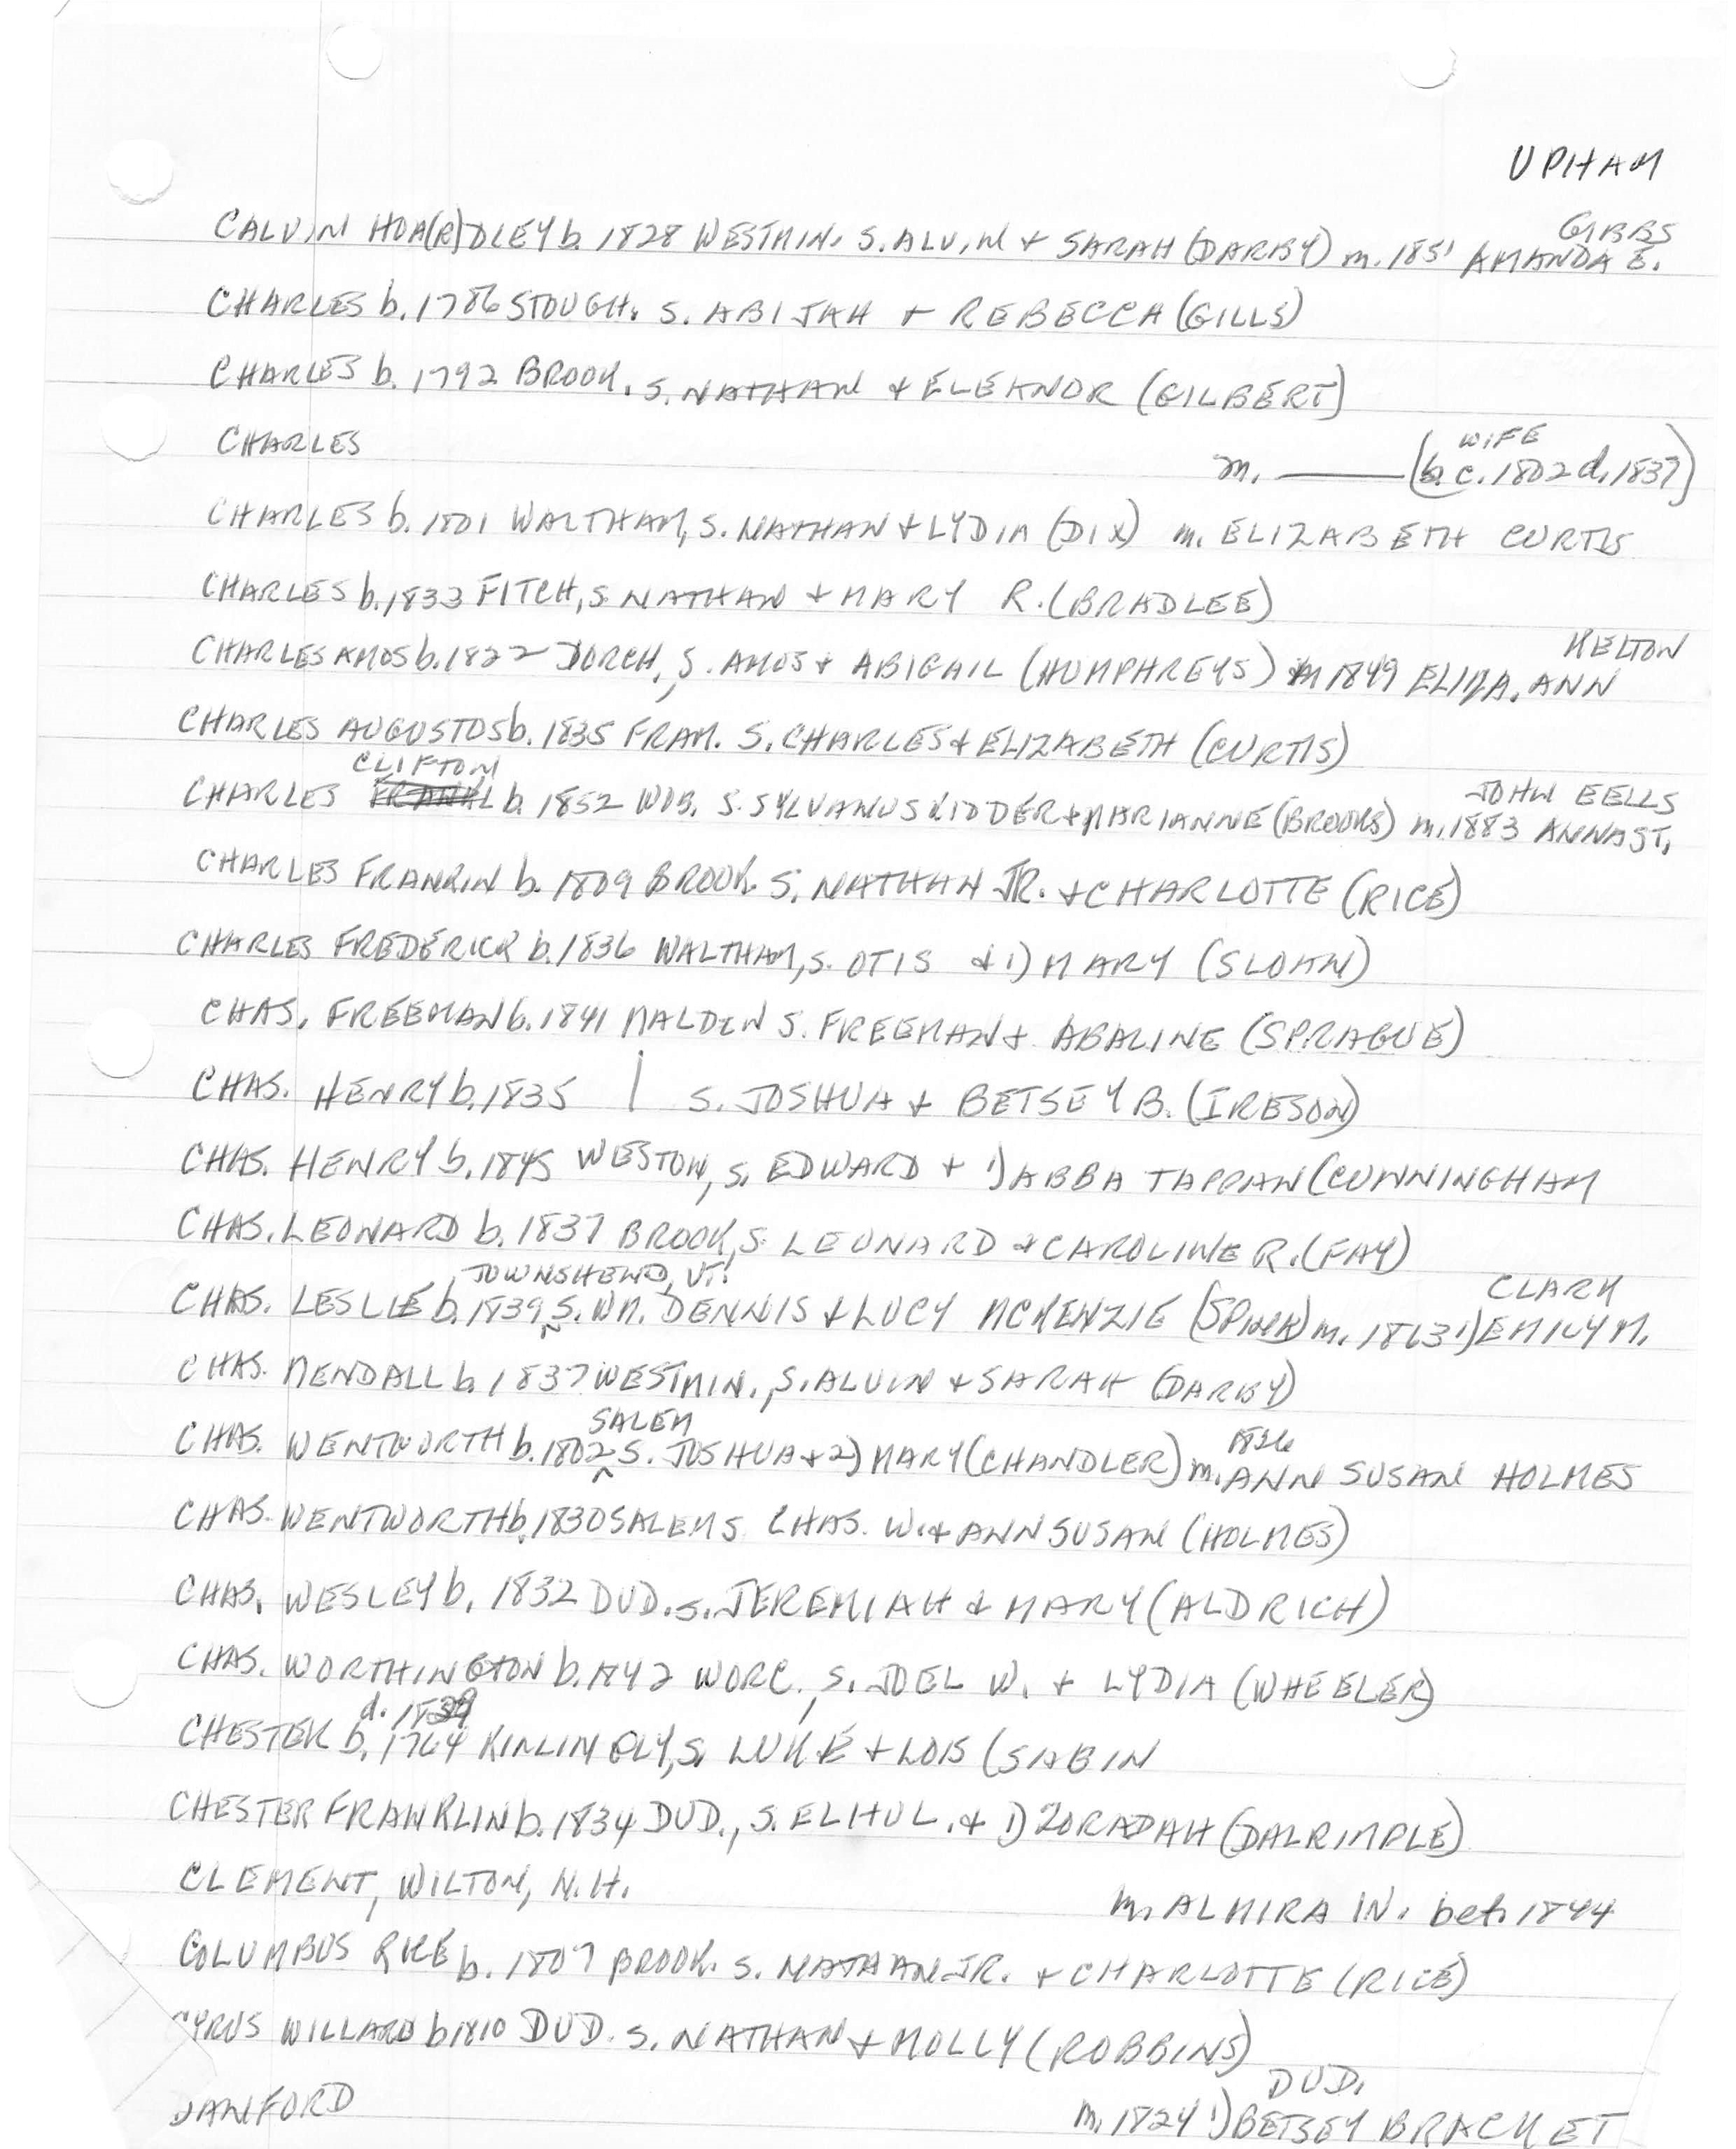 UPHAM
GIBBS
CALVIN HOA(R)DLEY b. 1828 WESTMIN. S. ALVIN + SARAH (DARBY) m. 1851 AMANDA E.
CHARLES b. 1786 STOUGH. S. ABIJAH + REBECCA (GILLS)
CHARLES b. 1792 BROOK. S. NATHAN + ELEANOR (GILBERT)
WIFE
CHARLES m. ——— (b. c. 1802 d. 1837)
CHARLES b. 1801 WALTHAM, S. NATHAN + LYDIA (DIX) m. ELIZABETH CURTIS
CHARLES b. 1833 FITCH, S NATHAN + MARY R. (BRADLEE)
MELTON
CHARLES AMOS b. 1822 DORCH, S. AMOS + ABIGAIL (HUMPHREYS) m 1849 ELIZA. ANN
CHARLES AUGUSTUS b. 1835 FRAM. S. CHARLES + ELIZABETH (CURTIS)
CLIFTON JOHN EELLS
CHARLES b. 1852 WOB. S. SYLVANUS KIDDER + MARIANNE (BROOKS) m. 1883 ANNA ST.
CHARLES FRANKIN b. 1809 BROOK. S. NATHAN JR. + CHARLOTTE (RICE)
CHARLES FREDERICK b. 1836 WALTHAM, S. OTIS + 1) MARY (SLOAN)
CHAS. FREEMAN b. 1841 MALDEN S. FREEMAN + ABALINE (SPRAGUE)
CHAS. HENRY b. 1835 | S. JOSHUA + BETSEY B. (IRESON)
CHAS. HENRY b. 1845 WESTON, S. EDWARD + 1) ABBA TAPPAN (CUNNINGHAM
CHAS. LEONARD b. 1837 BROOK, S. LEONARD + CAROLINE R. (FAY)
TOWNSHEND, VT. CLARK
CHAS. LESLIE b. 1839 ^ S. WM. DENNIS + LUCY MCKENZIE m. 1863 1) EMILY M.
CHAS. KENDALL b. 1837 WESTMIN., S. ALVIN + SARAH (DARBY)
SALEM 1826
CHAS. WENTWORTH b. 1802 ^ S. JOSHUA + 2) MARY (CHANDLER) m. ANN SUSAN HOLMES
CHAS. WENTWORTH b. 1830 SALEM S. CHAS. W. + ANN SUSAN (HOLMES)
CHAS. WESLEY b. 1832 DUD. S. JEREMIAH + MARY (ALDRICH)
CHAS. WORTHINGTON b. 1842 WORC., S. JOEL W. + LYDIA (WHEELER)
d.
CHESTER b. 1764 S. LUKE + LOIS (SABIN
CHESTER FRANKLIN b. 1834 DUD., S. ELIHU L. + 1) ZORADAH (DALRIMPLE)
CLEMENT, WILTON, N.H. m. ALMIRA IN. bef. 1844
COLUMBUS RICE b. 1807 BROOK. S. NATHAN JR. + CHARLOTTE (RICE)
CYRUS WILLARD b 1810 DUD. S. NATHAN + MOLLY (ROBBINS)
DUD.
DANFORD m. 1824 1) BETSEY BRACKET